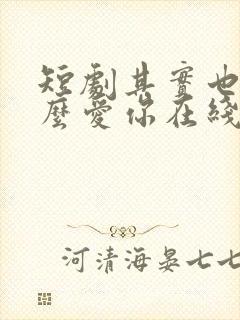 短劇其實也
麼愛你在綫
河清海晏七七